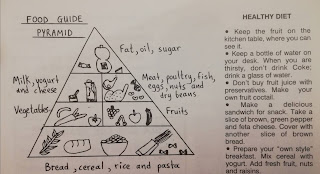 FOOD GUIDE
PYRAMID
Fat, oil, sugar
Milk, yogurt
and cheese
Meat, poultry, fish,
eggs, nuts and
dry beans
Vegetables
Fruits
Bread, cereal, rice and pasta
HEALTHY DIET
• Keep the fruit on the
kitchen table, where you can
see it.
• Keep a bottle of water on
your desk. When you are
thirsty, don't drink Coke;
drink a glass of water.
• Don't buy fruit juice with
preservatives. Make your
own fruit coctail.
• Make a delicious
sandwich for snack. Take a
slice of brown, green pepper
and feta cheese. Cover with
another slice of brown
bread.
• Prepare your "own style"
breakfast. Mix cereal with
yogurt. Add fresh fruit, nuts
and raisins.